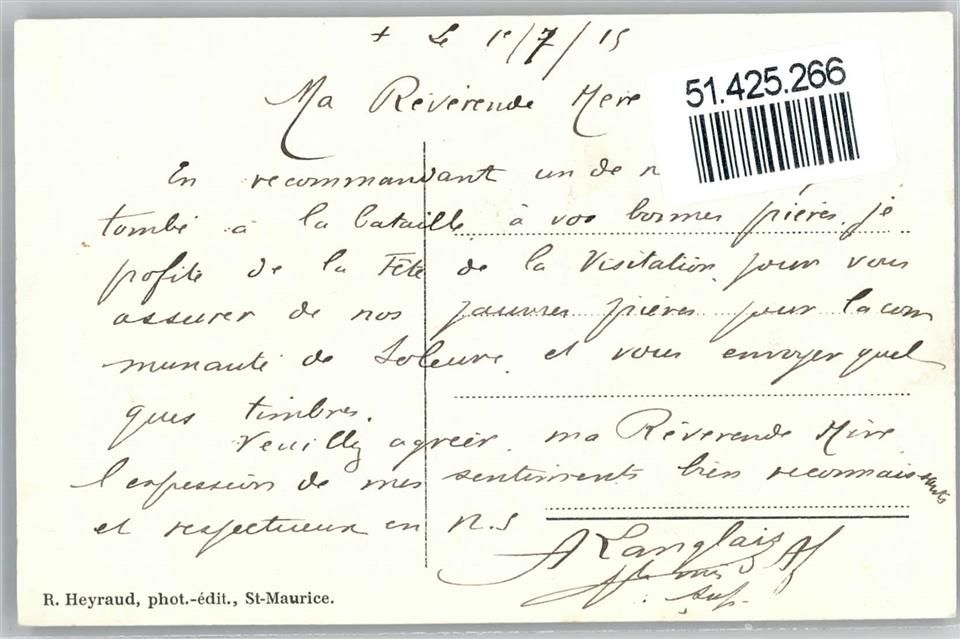 + Le 1e/7/15
51.425.266
Ma Révérende Mère
En recommandant un de n
tombé à la bataille à vos bonnes prières, je
profite de la Fête de la Visitation pour vous
assurer de nos pauvres prières pour la com
munauté de Soleure et vous envoyer quel
ques timbres.
Veuillez agréer ma Révérende Mère
l'expression de mes sentiments bien reconnaissants
et respectueux en N.S
A Langlais
sup.
R. Heyraud, phot.-édit., St-Maurice.